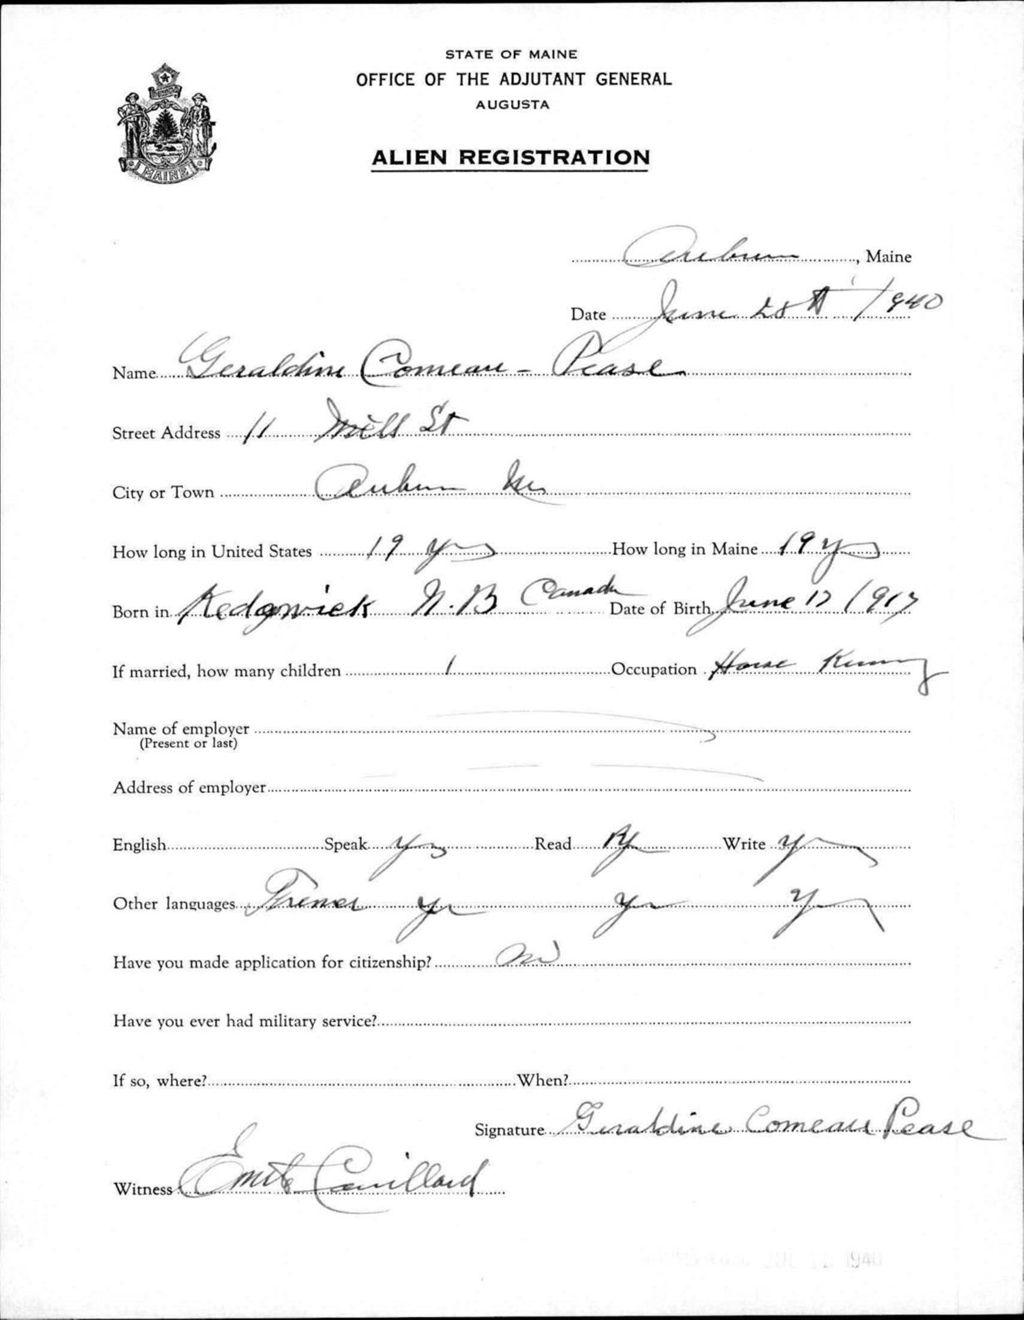 STATE OF MAINE
OFFICE OF THE ADJUTANT GENERAL
AUGUSTA
MAINE
ALIEN REGISTRATION
Auburn, Maine
Date June 28th 1940
Name Geraldine Comeau - Pease
Street Address 11 Mill St
City or Town Auburn Me
How long in United States 19 yrs How long in Maine 19 yrs
Born in Kedgwick N.B Canada Date of Birth June 17 1917
If married, how many children 1 Occupation House
Name of employer
(Present or last)
Address of employer
English Speak yes Read Write yes
Other languages French yes yes yes
Have you made application for citizenship? No
Have you ever had military service?
If so, where? When?
Signature Geraldine Comeau Pease
Witness
1940